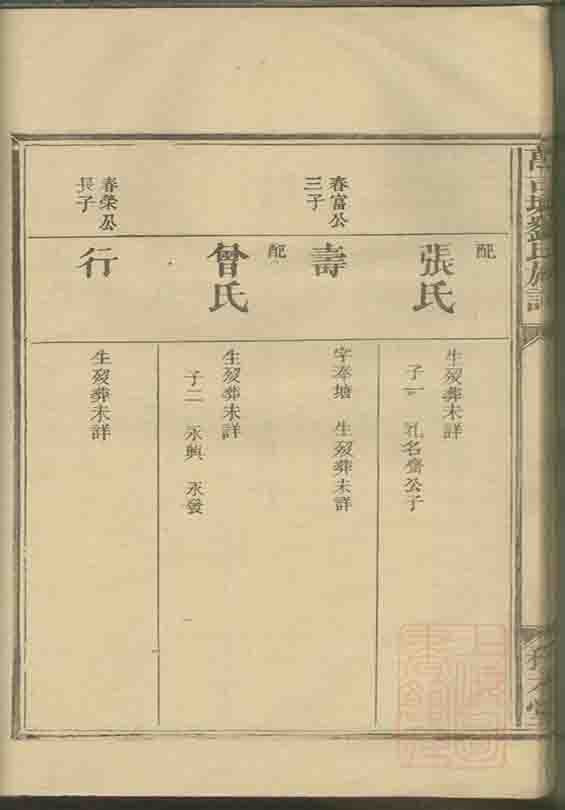 劉氏族譜
配
張氏
生歿葬未詳
子一 乳名齊公子
春富公
三子
壽
字奉塘 生歿葬未詳
配
曾氏
生歿葬未詳
子二 永興 永發
春榮公
長子
行
生歿葬未詳